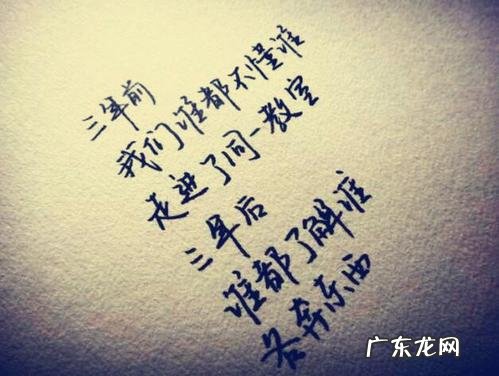 三年前
我们谁都不懂谁
走进了同一教室
三年后
谁都了解谁
各奔东西
广东龙网